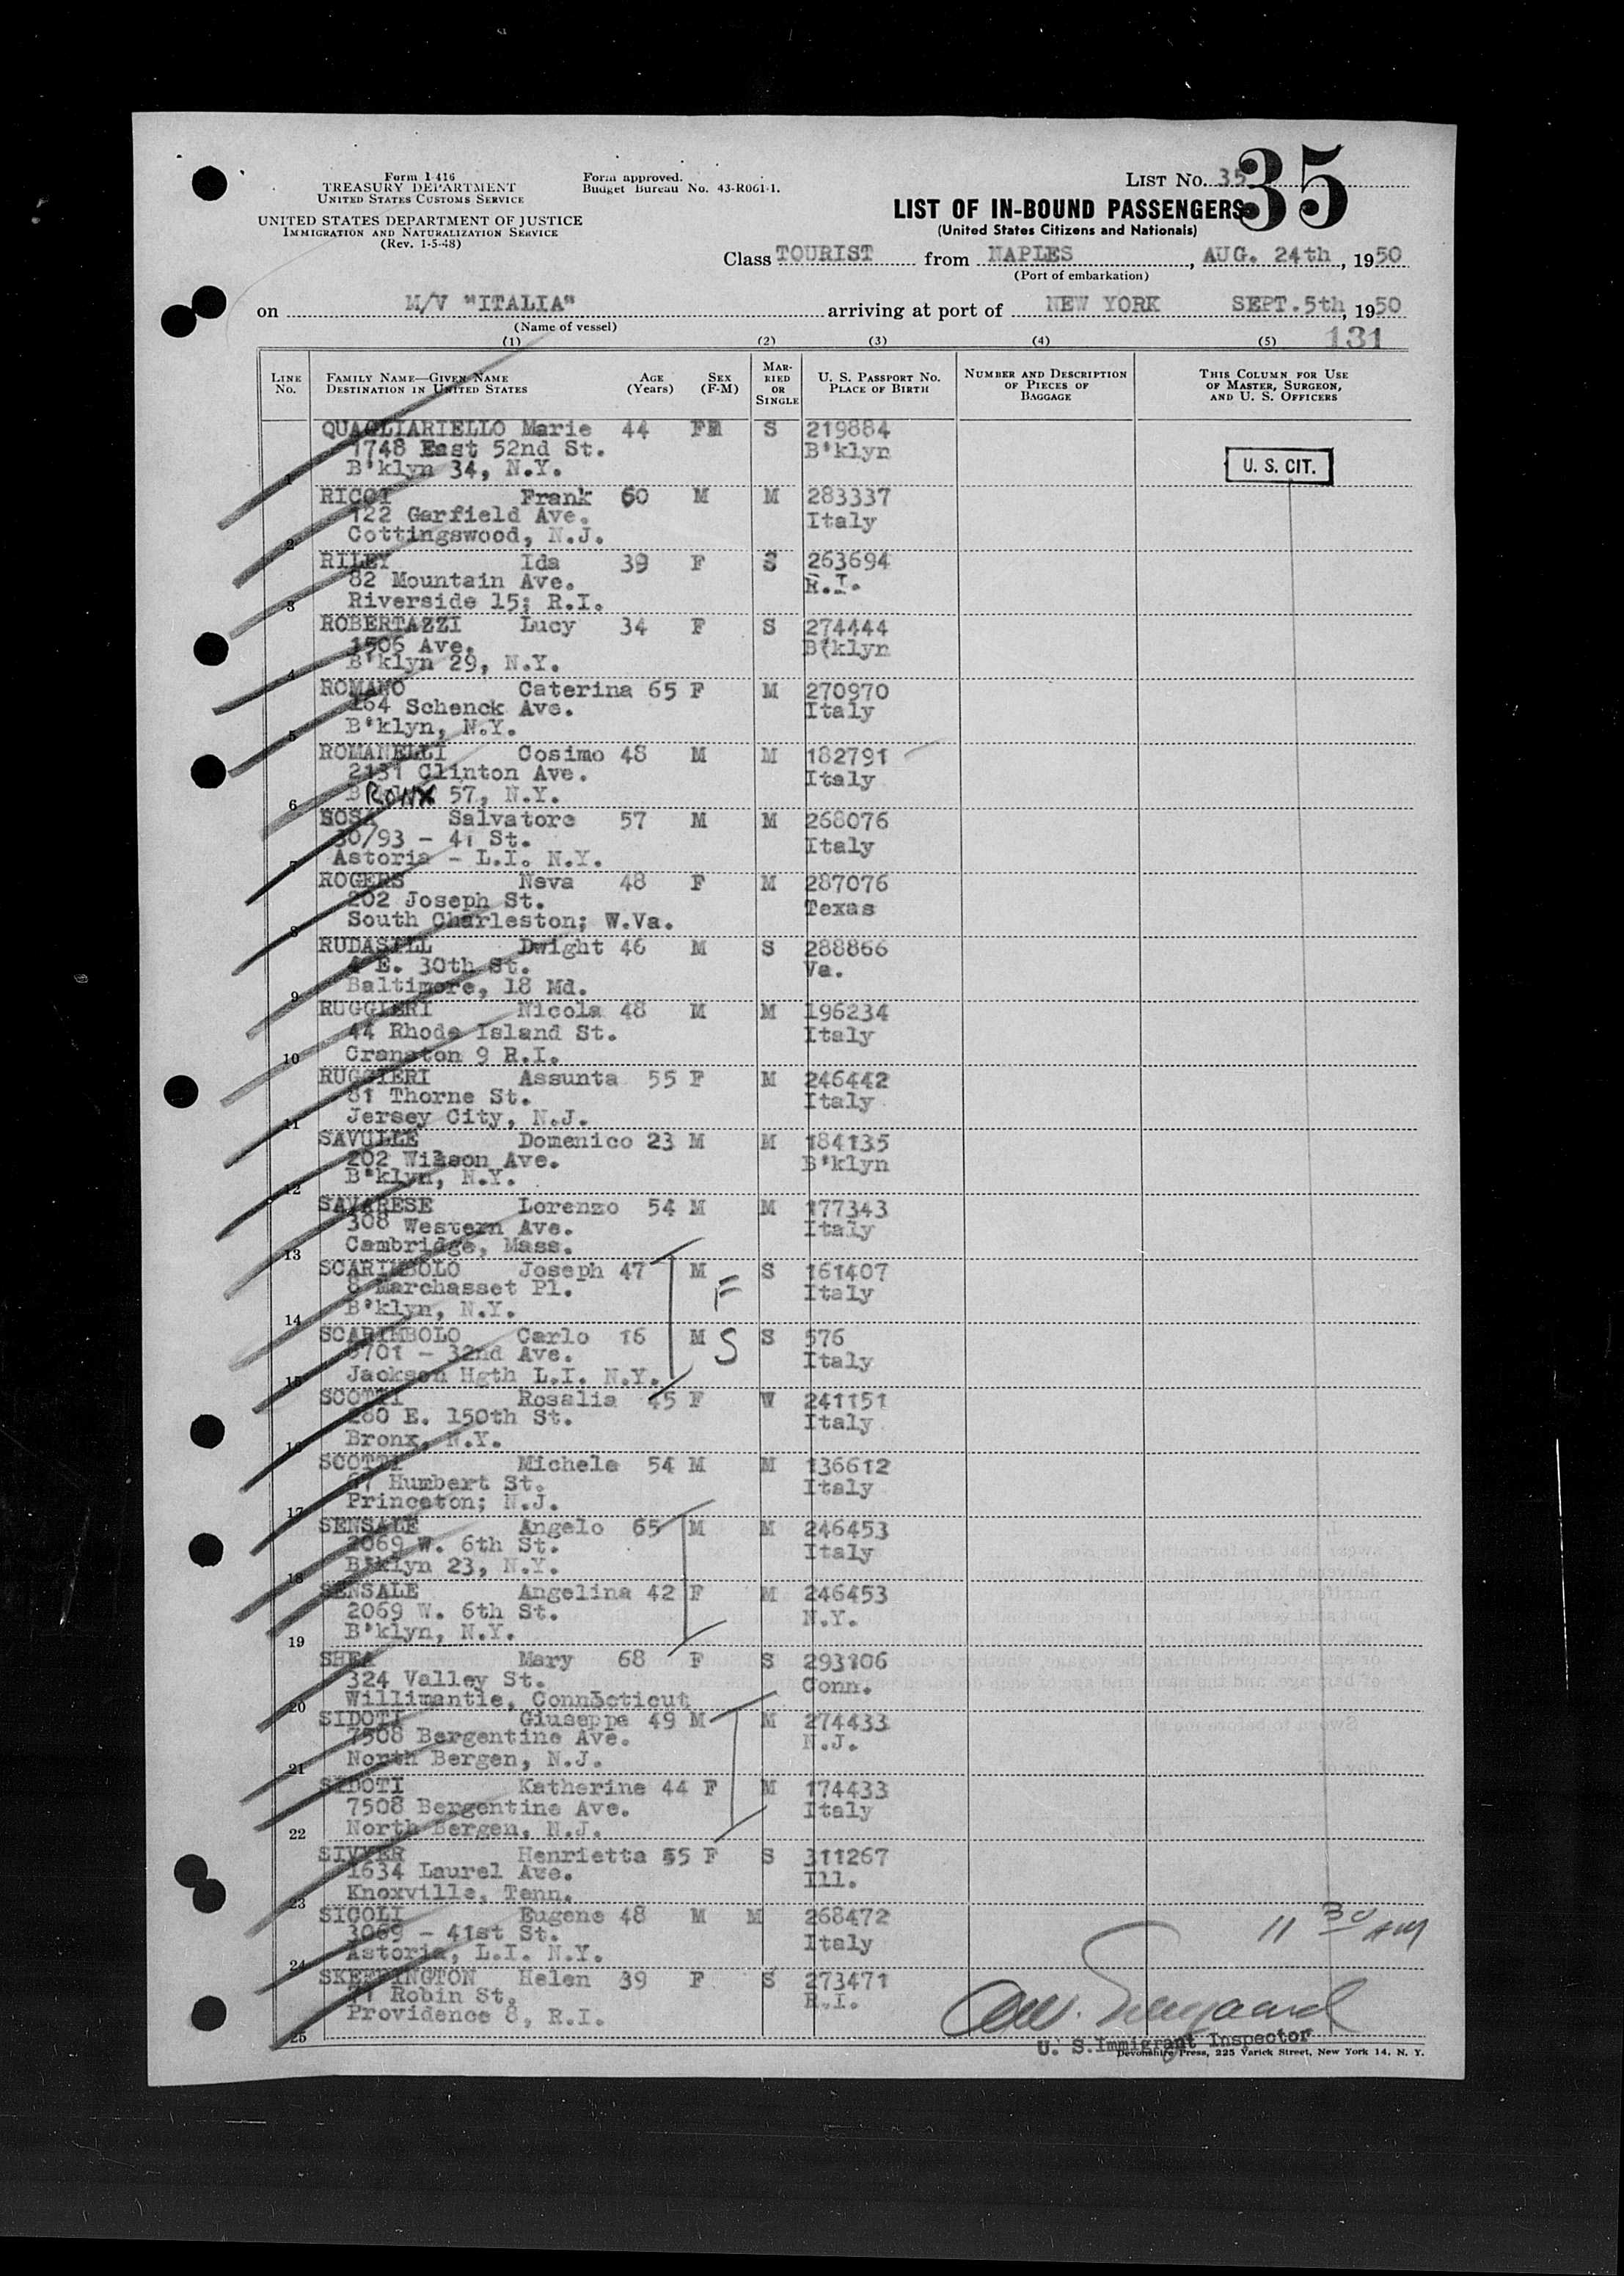 Form I-416
TREASURY DEPARTMENT
UNITED STATES CUSTOMS SERVICE
UNITED STATES DEPARTMENT OF JUSTICE
IMMIGRATION AND NATURALIZATION SERVICE
(Rev. 1-5-48)
Form approved.
Budget Bureau No. 43-R061-1.
LIST NO. 35
35
LIST OF IN-BOUND PASSENGERS
(United States Citizens and Nationals)
Class TOURIST from NAPLES, AUG. 24th, 1950
(Port of embarkation)
on M/V "ITALIA" arriving at port of NEW YORK SEPT. 5th, 1950
(Name of vessel)
(1) (2) (3) (4) (5) 131
LINE NO. FAMILY NAME—GIVEN NAME DESTINATION IN UNITED STATES AGE (Years) SEX (F-M) MARRIED OR SINGLE U. S. PASSPORT NO. PLACE OF BIRTH NUMBER AND DESCRIPTION OF PIECES OF BAGGAGE THIS COLUMN FOR USE OF MASTER, SURGEON, AND U. S. OFFICERS
QUAGLIARIELLO Marie 44 F S 219884
1748 East 52nd St. B'klyn
1 B'klyn 34, N.Y. U. S. CIT.
RICCI Frank 60 M M 283337
122 Garfield Ave. Italy
2 Cottingswood, N.J.
RILEY Ida 39 F S 263694
82 Mountain Ave. R.I.
3 Riverside 15; R.I.
ROBERTAZZI Lucy 34 F S 274444
1506 Ave. B(klyn
4 B'klyn 29, N.Y.
ROMANO Caterina 65 F M 270970
164 Schenck Ave. Italy
5 B'klyn, N.Y.
ROMANELLI Cosimo 48 M M 182791
2131 Clinton Ave. Italy
6 BRONX 57, N.Y.
SOSA Salvatore 57 M M 268076
30/93 - 41 St. Italy
7 Astoria - L.I. N.Y.
ROGERS Neva 48 F M 287076
202 Joseph St. Texas
8 South Charleston; W.Va.
RUDASILL Dwight 46 M S 288866
4 E. 30th St. Va.
9 Baltimore, 18 Md.
RUGGIERI Nicola 48 M M 196234
44 Rhode Island St. Italy
10 Cranston 9 R.I.
RUGGIERI Assunta 55 F M 246442
81 Thorne St. Italy
11 Jersey City, N.J.
SAVULLE Domenico 23 M M 184135
202 Wilson Ave. B'klyn
12 B'klyn, N.Y.
SAVARESE Lorenzo 54 M M 177343
308 Western Ave. Italy
13 Cambridge, Mass.
SCARIMBOLO Joseph 47 M F S 161407
8 Marchasset Pl. Italy
14 B'klyn, N.Y.
SCARIMBOLO Carlo 16 M S S 576
5701 - 32nd Ave. Italy
15 Jackson Hgth L.I. N.Y.
SCOTTI Rosalia 45 F W 241151
280 E. 150th St. Italy
16 Bronx, N.Y.
SCOTTI Michele 54 M M 136612
67 Humbert St. Italy
17 Princeton; N.J.
SENSALE Angelo 65 M M 246453
2069 W. 6th St. Italy
18 B'klyn 23, N.Y.
SENSALE Angelina 42 F M 246453
2069 W. 6th St. N.Y.
19 B'klyn, N.Y.
SHEA Mary 68 F S 293106
324 Valley St. Conn.
20 Willimantie, Connecticut
SIDOTI Giuseppe 49 M M 274433
7508 Bergentine Ave. N.J.
21 North Bergen, N.J.
SIDOTI Katherine 44 F M 174433
7508 Bergentine Ave. Italy
22 North Bergen, N.J.
SIVYER Henrietta 55 F S 311267
1634 Laurel Ave. Ill.
23 Knoxville, Tenn.
SICOLI Eugene 48 M M 268472
3069 - 41st St. Italy
24 Astoria, L.I. N.Y. 11 30 AM
SKEFFINGTON Helen 39 F S 273471
71 Robin St. R.I.
25 Providence 8, R.I.
U. S. Immigrant Inspector
Devonshire Press, 225 Varick Street, New York 14, N. Y.